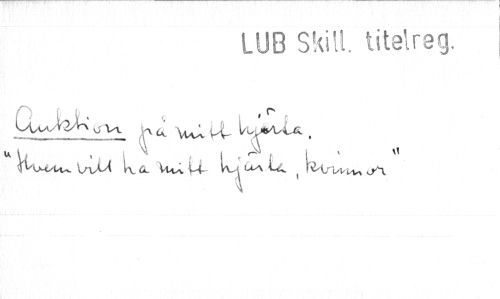 LUB Skill. titelreg.
Auktion på mitt hjärta.
"Hvem vill ha mitt hjärta, kvinnor"